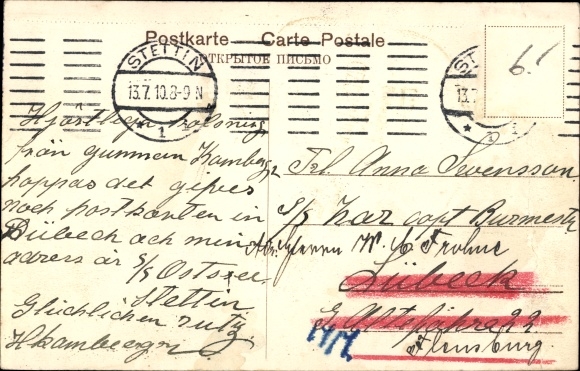 Postkarte — Carte Postale
ОТКРЫТОЕ ПИСЬМО
STETTIN
13.7.10.8-9 N
* 1
6.
Hjärtlign hälsning
från gumman Hamberg
hoppas det gifves
noch postkarten in
Lübech och min
adress är S/S Ostsee
Stettin
Glüchlichen rutz
Frl. Anna Svensson
S/S Kar capt Burmestr
Adr. Herren W. C. Frohne
Lübeck
14/7.
Flensburg.